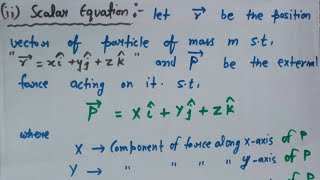 (ii) Scalar Equation :- let r⃗ be the position
vector of particle of mass m s.t.
"r⃗ = xî + yĵ + zk̂" and P⃗ be the external
force acting on it. s.t.
P⃗ = Xî + Yĵ + Zk̂
where
X → Component of force along x-axis of P
Y → " " " " y-axis of P